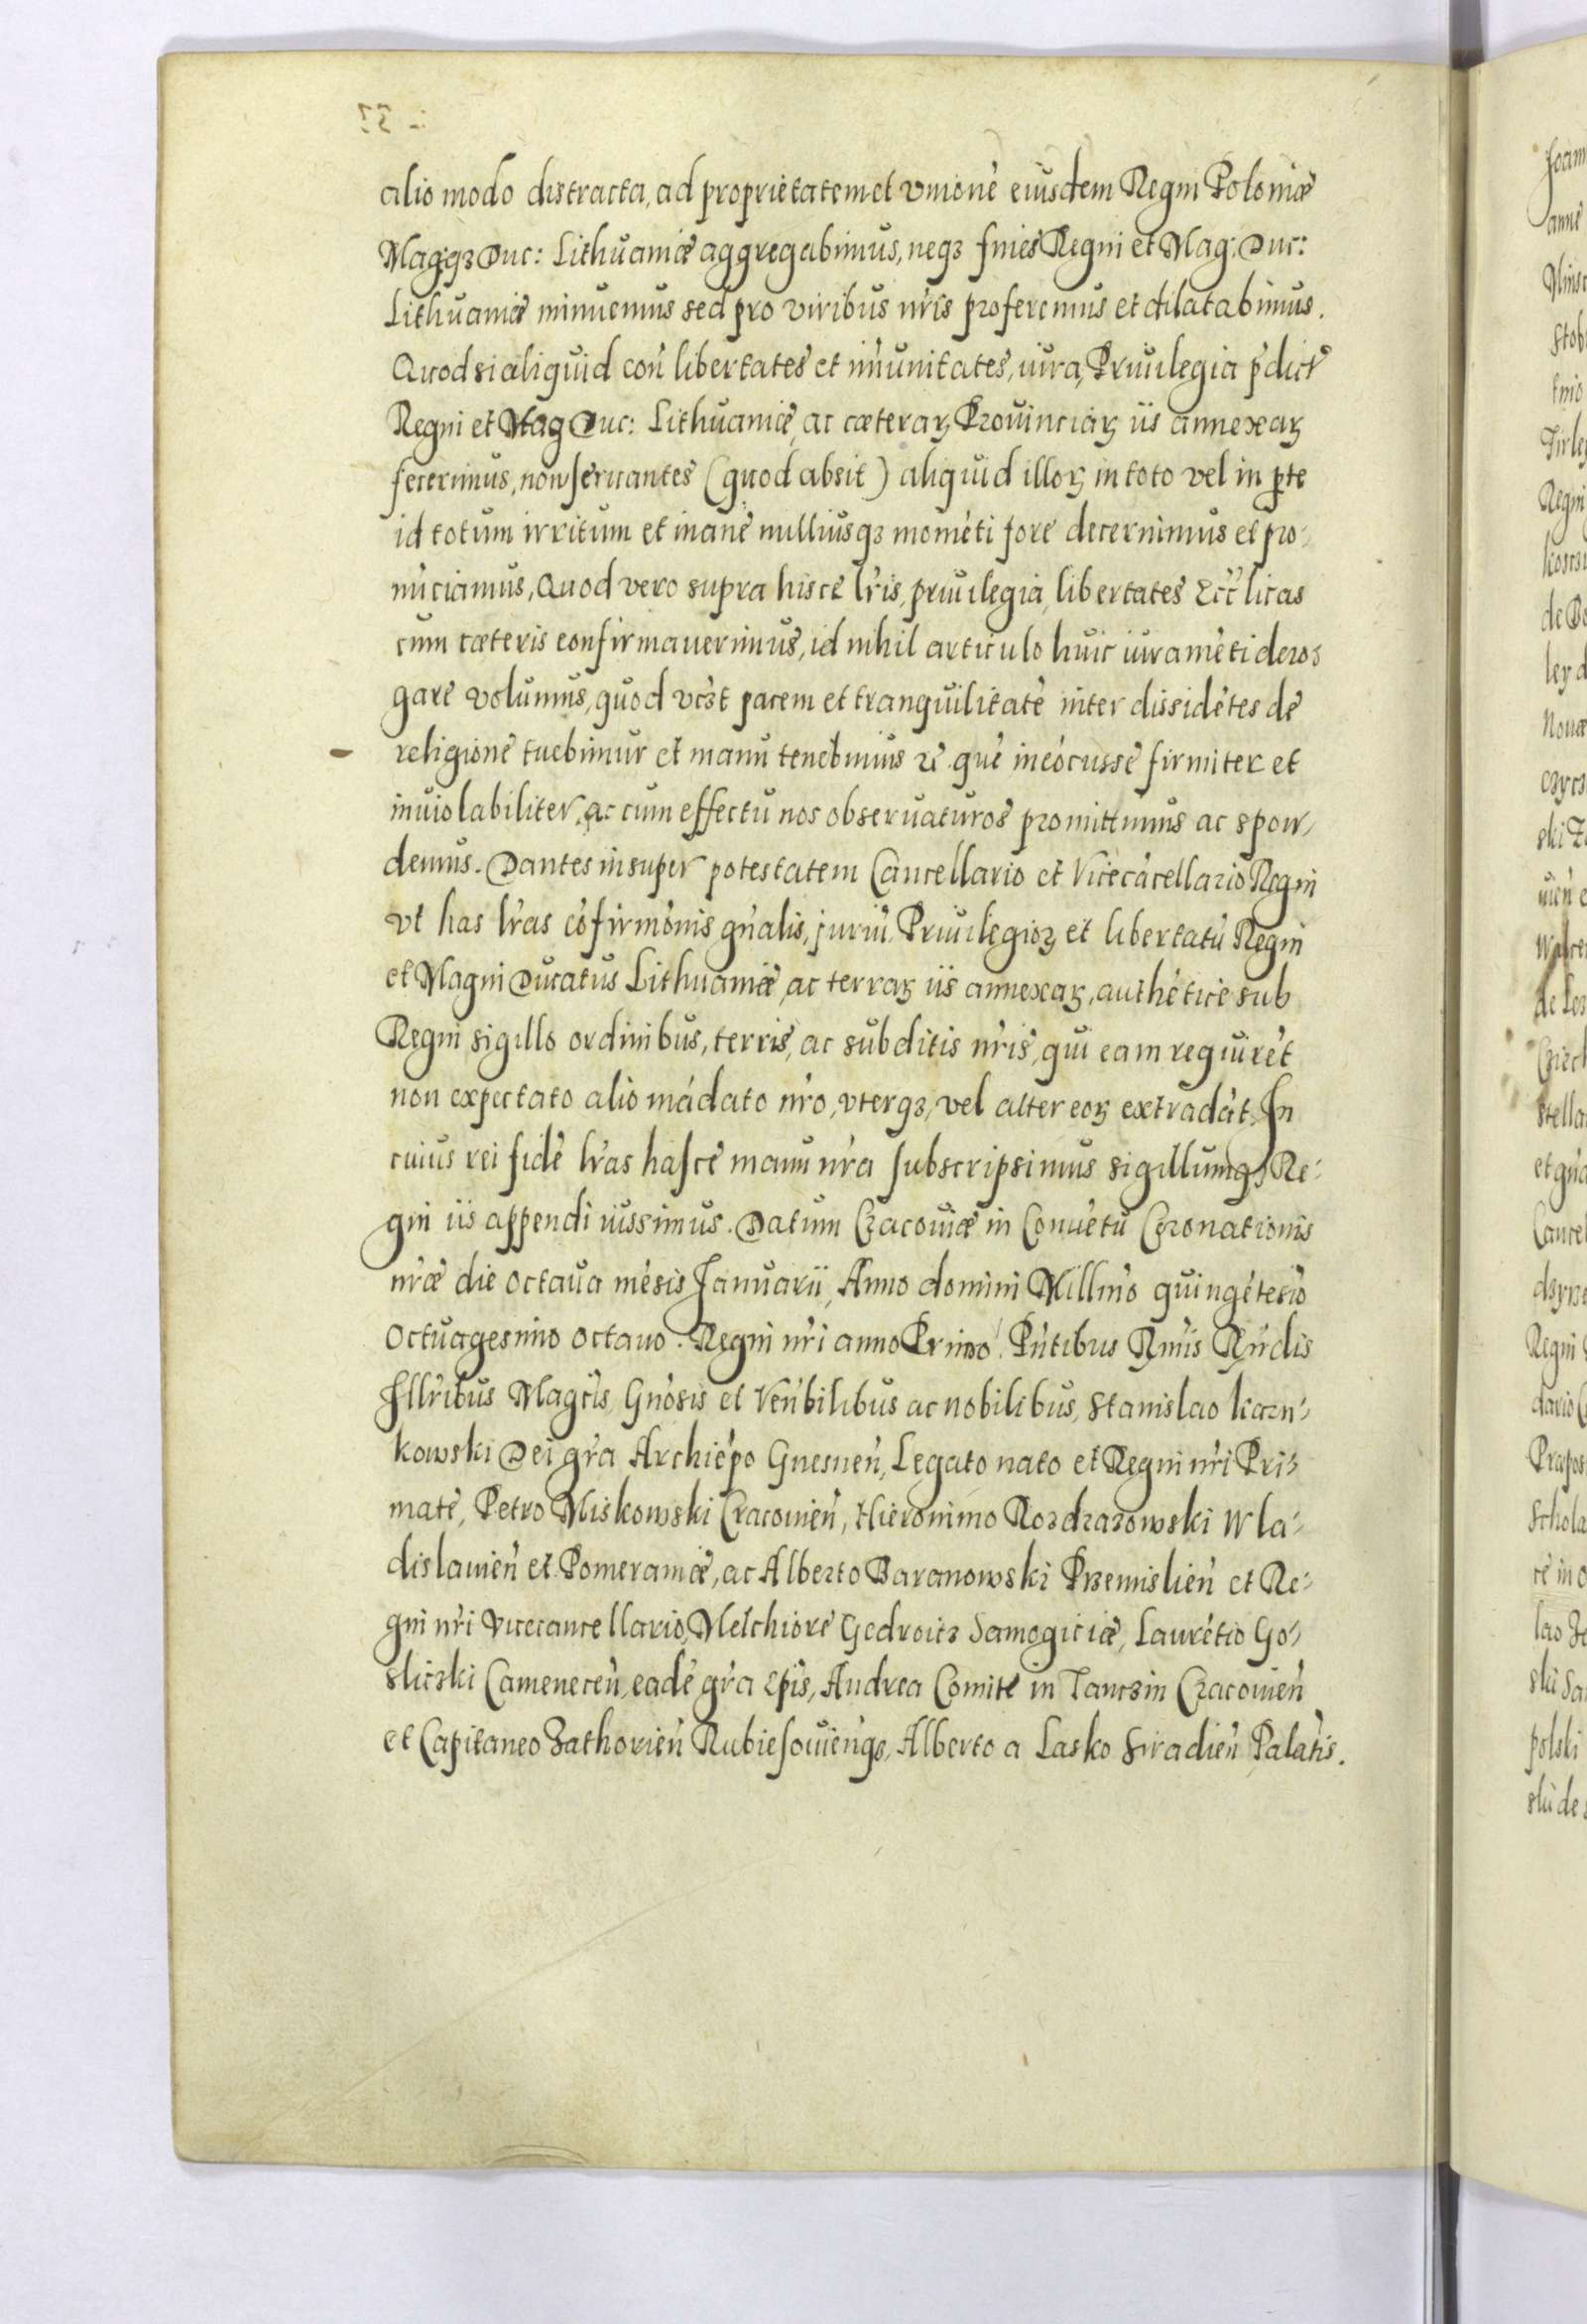 alio modo distracta, ad proprietatem et vnionẽ eiusdem Regni Poloniæ
Mag: qꝫ Duc: Lithuaniæ aggregabimus, neqꝫ fines Regni et Mag: Duc:
Lithuaniæ minuemus sed pro viribus nr̃is proferemus et dilatabimus.
Quod si aliquid con̂ libertates et im̃unitates, iura, Priuilegia p̃dict
Regni et Mag Duc: Lithuaniæ, ac cæteraꝝ Prouinciaꝝ iis annexaꝝ
fecerimus, non seruantes (quod absit) aliquid illoꝝ in toto vel in ꝑte
id totum irritum et inane nulliusqꝫ momẽti fore decernimus et pro-
nũciamus, Quod vero supra hisce lr̃is, priuilegia, libertates Ecc̃licas
cum cæteris confirmauerimus, id nihil articulo huic iuramẽti dero-
gare volumus, quod vcꝫt pacem et tranquilitatẽ inter dissidẽtes de
religione tuebimur et manu tenebimus
inuiolabiliter, ac cum effectu nos obseruaturos promittimus ac spon-
demus. Dantes insuper potestatem Cancellario et Vicecãcellario Regni
vt has lr̃as cõfirmõnis gñalis, juriũ Priuilegioꝝ et libertatũ Regni
et Magni Ducatus Lithuaniæ, ac terraꝝ iis annexaꝝ, authẽtice sub
Regni sigillo ordinibus, terris, ac subditis nr̃is, qui eam requirẽt
non expectato alio mãdato nr̃o, vterqꝫ, vel alter eoꝝ extradãt. In
cuius rei fidẽ lr̃as hasce manu nr̃a subscripsimus sigillumqꝫ Re-
gni iis appendi iussimus. Datum Cracouiæ in Conuẽtu Coronationis
nr̃æ die octaua mẽsis Januarii, Anno domini Millm̃o quingẽtesio
Octuagesimo octauo. Regni nr̃i anno Primo. Pñtibus Rm̃is Rñdis
Illr̃ibus Magc̃is, Gnõsis et Veñbilibus ac nobilibus, Stanislao karn-
kowski Dei gr̃a Archiẽpo Gnesneñ, Legato nato et Regni nr̃i Pri-
mate, Petro Miskowski Cracouieñ, Hieronimo Rozdrazowski Wla-
dislauieñ et Pomeraniæ, ac Alberto Baranowski Premislieñ et Re-
gni nr̃i Vicecancellario, Melchiore Gedroitz Samogitiæ, Laurẽtio Go-
sliczki Cameneceñ, eadẽ gr̃a Ep̃is, Andrea Comite in Tanczin Cracouieñ
et Capitaneo Zathorieñ Rubiesouieñqꝫ, Alberto a Lasko Siradieñ Palãtis.